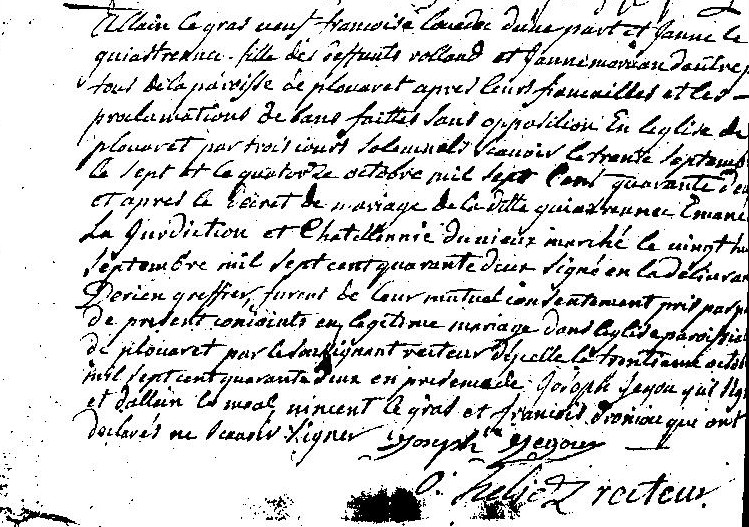 Allain le gras veuf francoise lavedec dune part et Janne le
quiastrennec fille des deffunts rolland et Janne moreau dautre p
tous de la paroisse de plouaret apres leurs fiancailles et les
proclamations de bans faittes sans opposition En leglise de
plouaret par trois jours solemnels scavoir le trente septemb
le sept et le quatorze octobre mil sept Cent quarante deu
et apres le Decret de mariage de la ditte quiastrennec Emané
La Jurdiction et Chatellennie du vieux marché le vingt hu
septembre mil sept cent quarante deux signé en la delivran
Dorien greffier, furent de leur mutuel consentement pris par p
de present conjoints en legitime mariage dans leglise paroissia
de plouaret par le soussignant recteur dicelle le trentieme octo
mil sept cent quarante deux en presence de Joseph Jegou qui sig
et dallain le moal, vincent le gras et francois droniou que ont
declarés ne scavoir signer Joseph Jegou
recteur